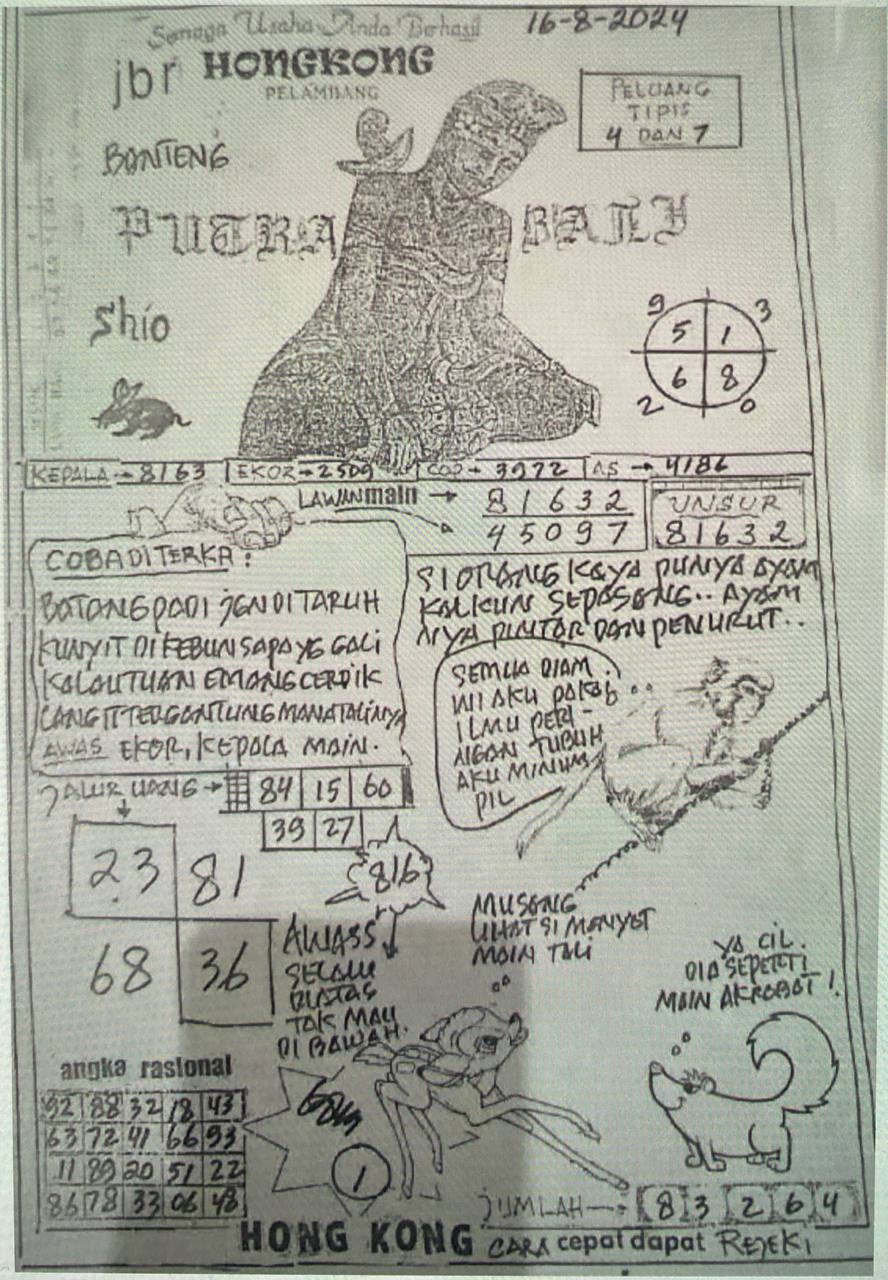 Semoga Usaha Anda Berhasil
16-8-2024
jbr HONGKONG
PELAMBANG
PELUANG
TIPIS
4 DAN 7
BANTENG
PUTRA BALI
Shio
9 3
5 1
6 8
2 0
KEPALA → 8163 EKOR → 2509 COP → 3972 AS → 4186
LAWAN main → 81632
45097
UNSUR
81632
COBA DITERKA :
BATANG PADI JGN DITARUH
KUNYIT DI KEBUN SAPA YG GALI
KALAU TUAN EMANG CERDIK
LANGIT TERGANTUNG MANA TALINYA
AWAS EKOR, KEPALA MAIN.
SI ORANG KAYA PUNYA AYAM
KALKUN SEPASANG.. AYAM
NYA PINTAR DAN PENURUT..
SEMUA DIAM
INI AKU PAKAI
ILMU PERI-
NGAN TUBUH
AKU MINUM
PIL
JALUR UANG → 84 15 60
39 27
23 81
68 36
816
AWASS
SELALU
DIATAS
TAK MAU
DI BAWAH.
MUSANG
LIHAT SI MONYET
MAIN TALI
YA CIL.
DIA SEPERTI
MAIN AKROBAT !
angka rasional
92 88 32 18 43
63 72 41 66 93
11 89 20 51 22
86 78 33 06 48
1
JUMLAH → 8 3 2 6 4
HONG KONG CARA cepat dapat REJEKI